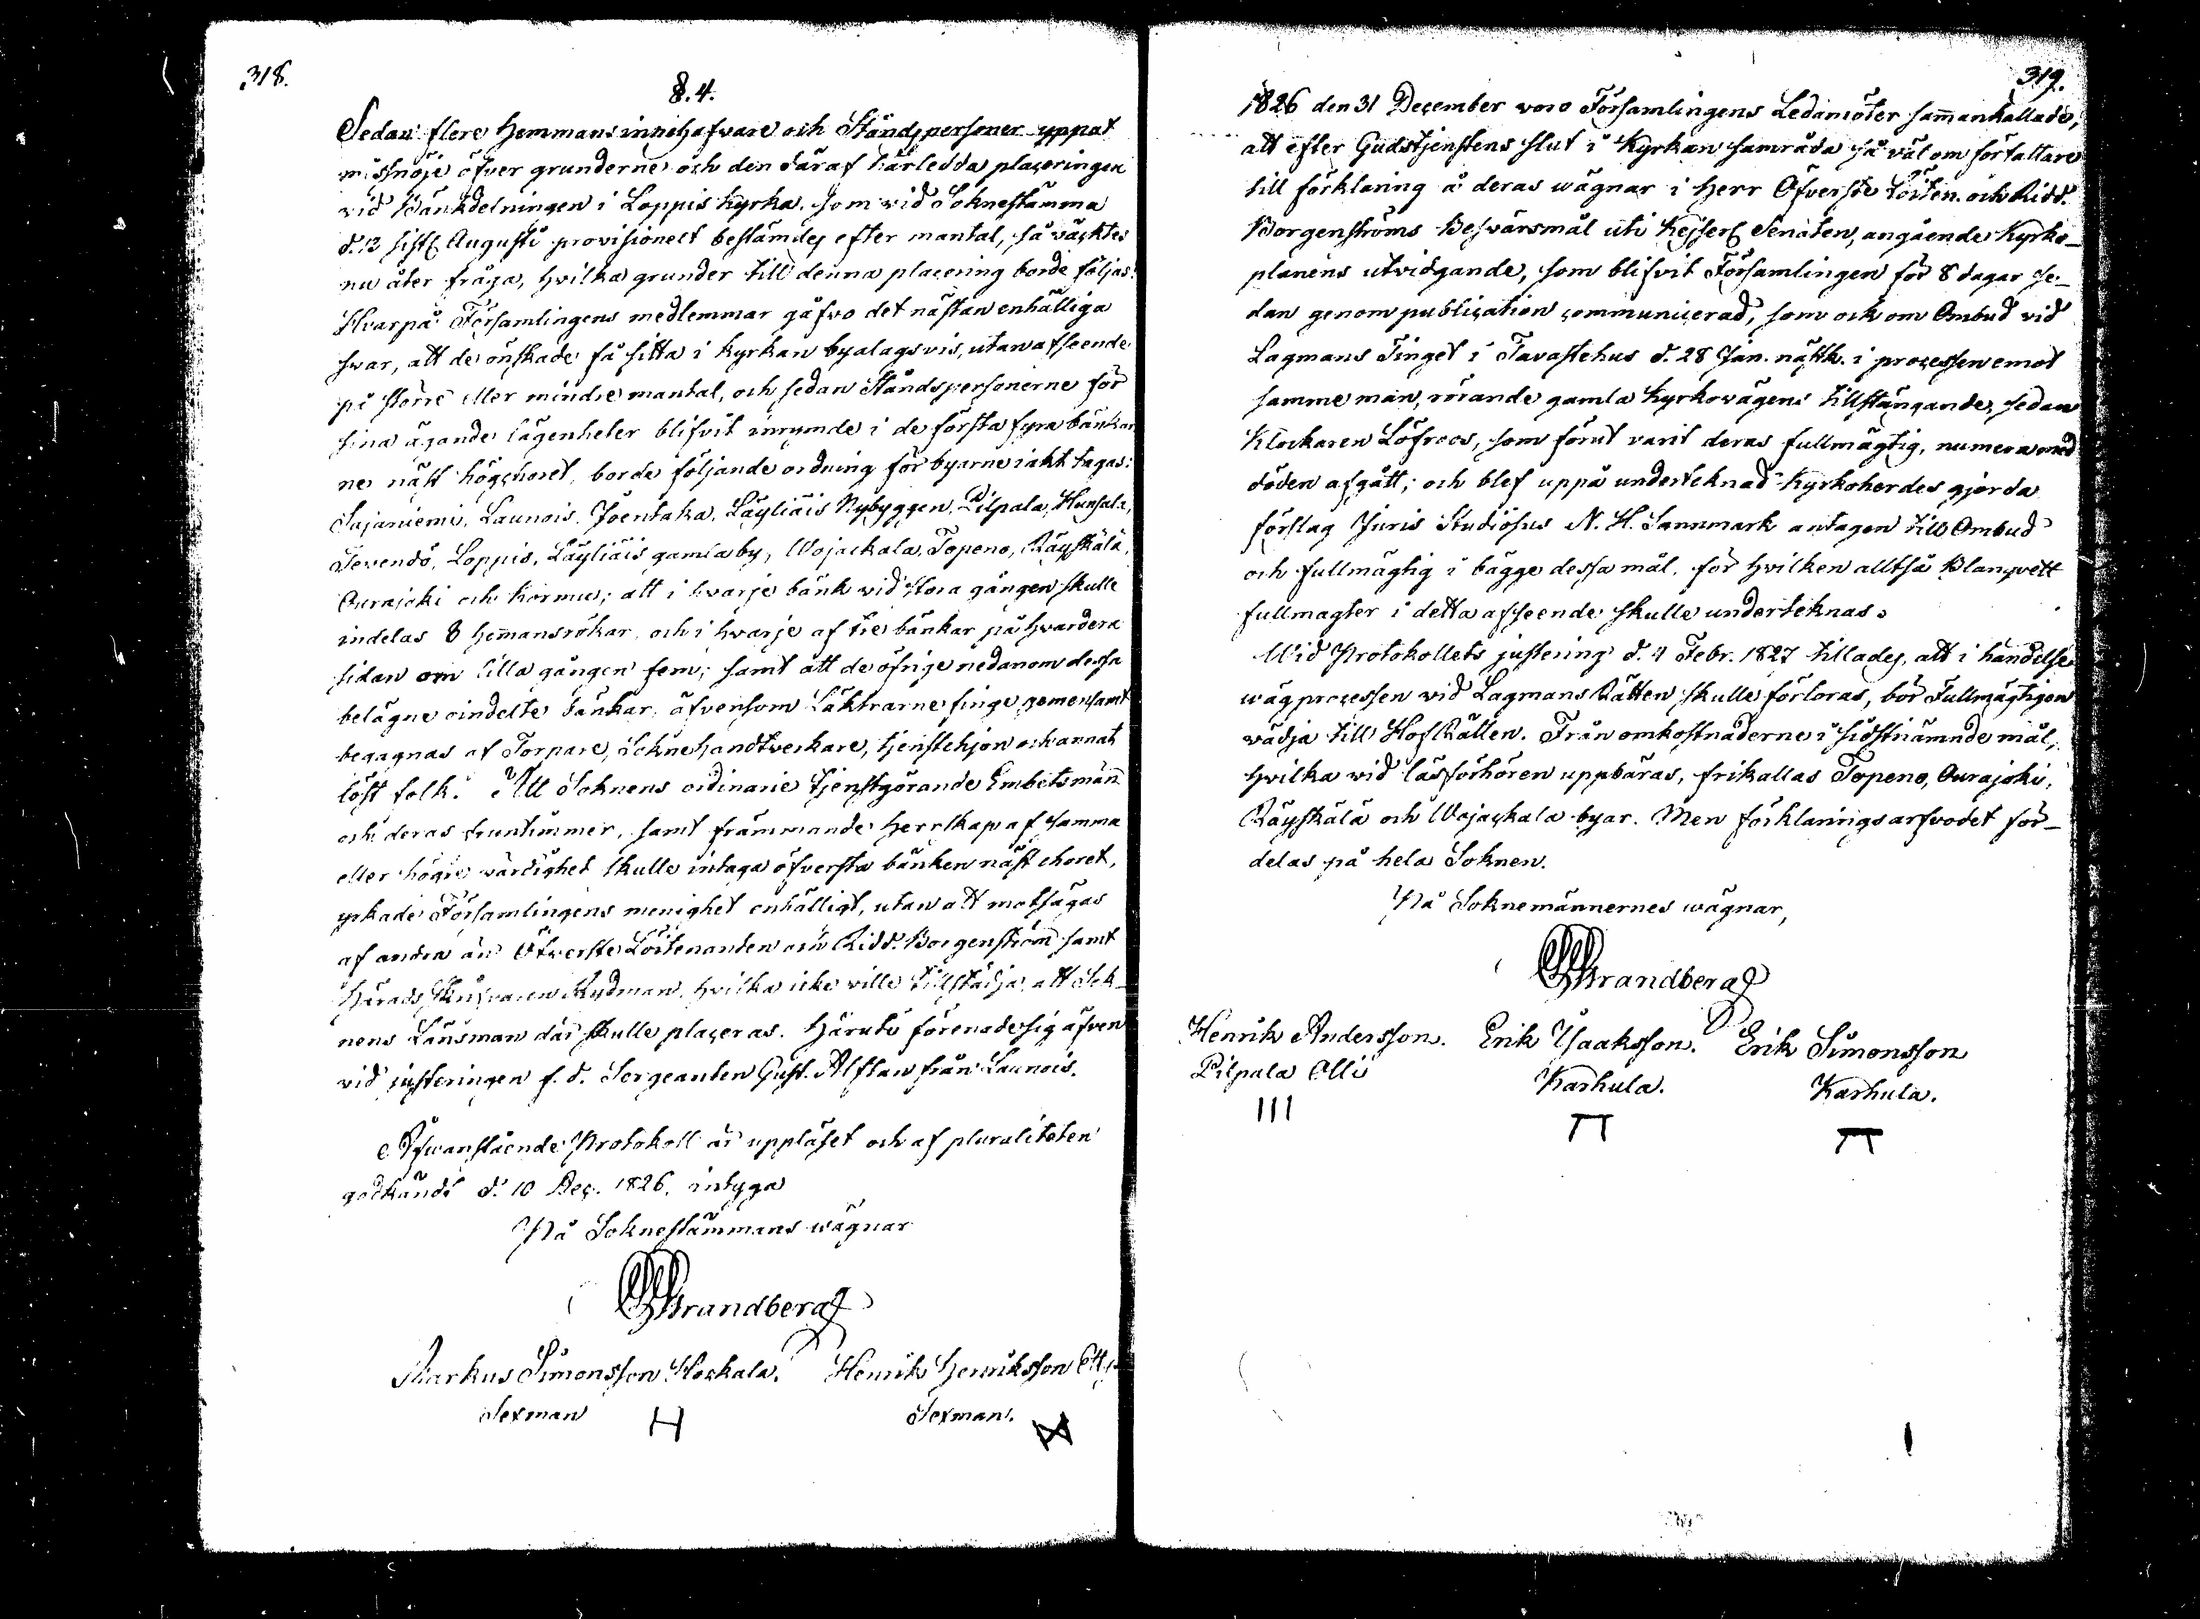 318.
§. 4.
Sedan flere Hemmansinnehafvare och Ståndspersoner yppat
missnöje öfver grunderne och den däraf härledda placeringen
vid Bänkdelningen i Loppis Kyrka, som vid Soknestämma
d. 13 sistl. Augusti provisionelt bestämdes efter mantal, så väcktes
nu åter fråga, hvilka grunder till denna placering borde följas:
Hvarpå Församlingens medlemmar gåfvo det nästan enhälliga
svar, att de önskade få sitta i Kyrkan byalagsvis, utan afseende
på större eller mindre mantal, och sedan Ståndspersonerne för
sina ägande lägenheter blifvit inrymde i de första fyra bänkar
ne näst högchoret, borde följande ordning för byarne iakttagas:
Sajaniemi, Launois, Joentaka, Läyliäis Nybyggen, Pilpala, Hunsala,
Tevendö, Loppis, Läyliäis gamla by, Wojackala, Topeno, Räyskälä,
Ourajoki och Kormu; att i hvarje bänk vid stora gången skulle
indelas 8 hemansrökar, och i hvarje af tre bänkar på hvardera
sidan om lilla gången fem; samt att de öfrige nedanom dessa
belägne oindelte bänkar, äfvensom Läktrarne finge gemensamt
begagnas af Torpare, Soknehandtverkare, tjenstehjon och annat
löst folk. Att Soknens ordinarie tjenstgörande Embetsmän
och deras fruntimmer, samt främmande Herrskap af samma
eller högre värdighet skulle intaga öfversta bänken näst choret,
yrkade Församlingens menighet enhälligt, utan att motsägas
af andra än Öfverste Löitenanten och Ridd. Borgenström samt
Härads Skrifvaren Rydman, hvilka icke ville tillstädja att Sok-
nens Länsman där skulle placeras. Häruti förenade sig äfven
vid justeringen f. d. Sergeanten Gust. Alftan från Launois.
Ofvanstående Protokoll är uppläset och af pluraliteten
godkändt d. 10 Dec. 1826, intyga
På Soknestämmans vägnar
Strandberg
Markus Simonsson Hockala. Henrik Henriksson
Sexman H Sexman.
319.
1826 den 31 December voro Församlingens Ledamöter sammankallade,
att efter Gudstjenstens slut i Kyrkan samråda så väl om författare
till förklaring å deras wägnar i Herr Öfverste Löiten. och Ridd.
Borgenströms Besvärsmål uti Kejserl. Senaten, angående Kyrko-
planens utvidgande, som blifvit Församlingen för 8 dagar se-
dan genom publication communicerad, som ock om Ombud vid
Lagmans Tinget i Tavastehus d. 28 Jan. nästk. i processen emot
samme man, rörande gamla Kyrkovägens tillstängande, sedan
Klockaren Löfroos, som förut varit deras fullmägtig, numera med
döden afgått; och blef uppå undertecknad Kyrkoherdes gjorda
förslag Juris Studiosus N. H. Sannmark antagen till Ombud
och fullmägtig i bägge dessa mål, för hvilken alltså Blanquett
fullmagter i detta afseende skulle underteknas.
Wid Protokollets justering d. 4 Febr. 1827 tillades, att i händelse
wägprocessen vid Lagmans Rätten skulle förloras, bör Fullmägtigen
vädja till HofRätten. Från omkostnaderne i sidstnämnde mål,
hvilka vid läsförhören uppbäras, frikallas Topeno, Ourajoki,
Räyskälä och Wojackala byar. Men förklaringsarfvodet för-
delas på hela Soknen.
På Soknemännernes wägnar,
Strandberg
Henrik Andersson. Erik Isaksson. Erik Simonsson
Pilpala Olli Karhula. Karhula.
III